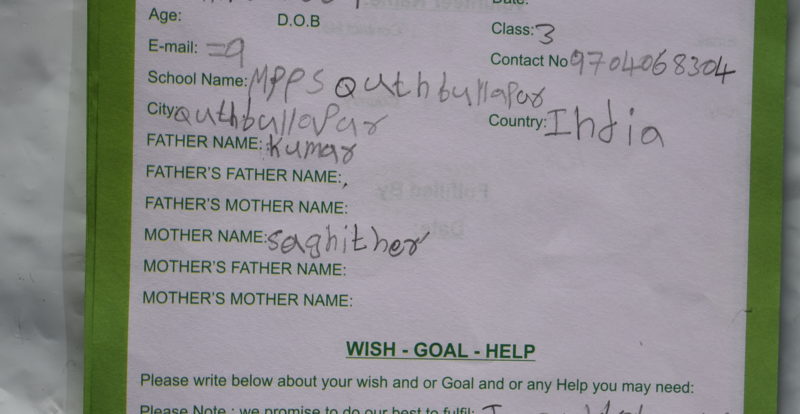 Date:
Age: D.O.B
Class: 3
E-mail: =9
Contact No 9704068304
School Name: MPPS Quthbullapar
City Quthbullapar
Country: India
FATHER NAME: Kumar
FATHER'S FATHER NAME:,
FATHER'S MOTHER NAME:
MOTHER NAME: saghither
MOTHER'S FATHER NAME:
MOTHER'S MOTHER NAME:
WISH - GOAL - HELP
Please write below about your wish and or Goal and or any Help you may need:
Please Note : we promise to do our best to fulfil: I